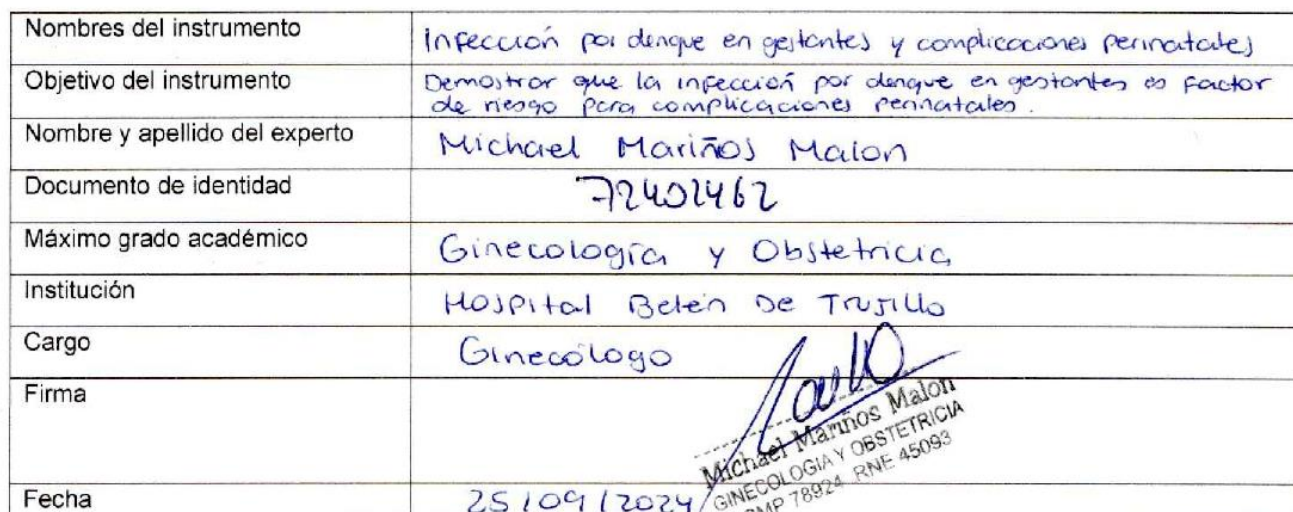 Nombres del instrumento
Infección por dengue en gestantes y complicaciones perinatales
Objetivo del instrumento
Demostrar que la infección por dengue en gestantes es factor
de riesgo para complicaciones perinatales.
Nombre y apellido del experto
Michael Mariños Malon
Documento de identidad
72402462
Máximo grado académico
Ginecología y Obstetricia
Institución
Hospital Belén De Trujillo
Cargo
Ginecólogo
Firma
Michael Mariños Malon
GINECOLOGIA Y OBSTETRICIA
CMP 78924 RNE 45093
Fecha
25/09/2024